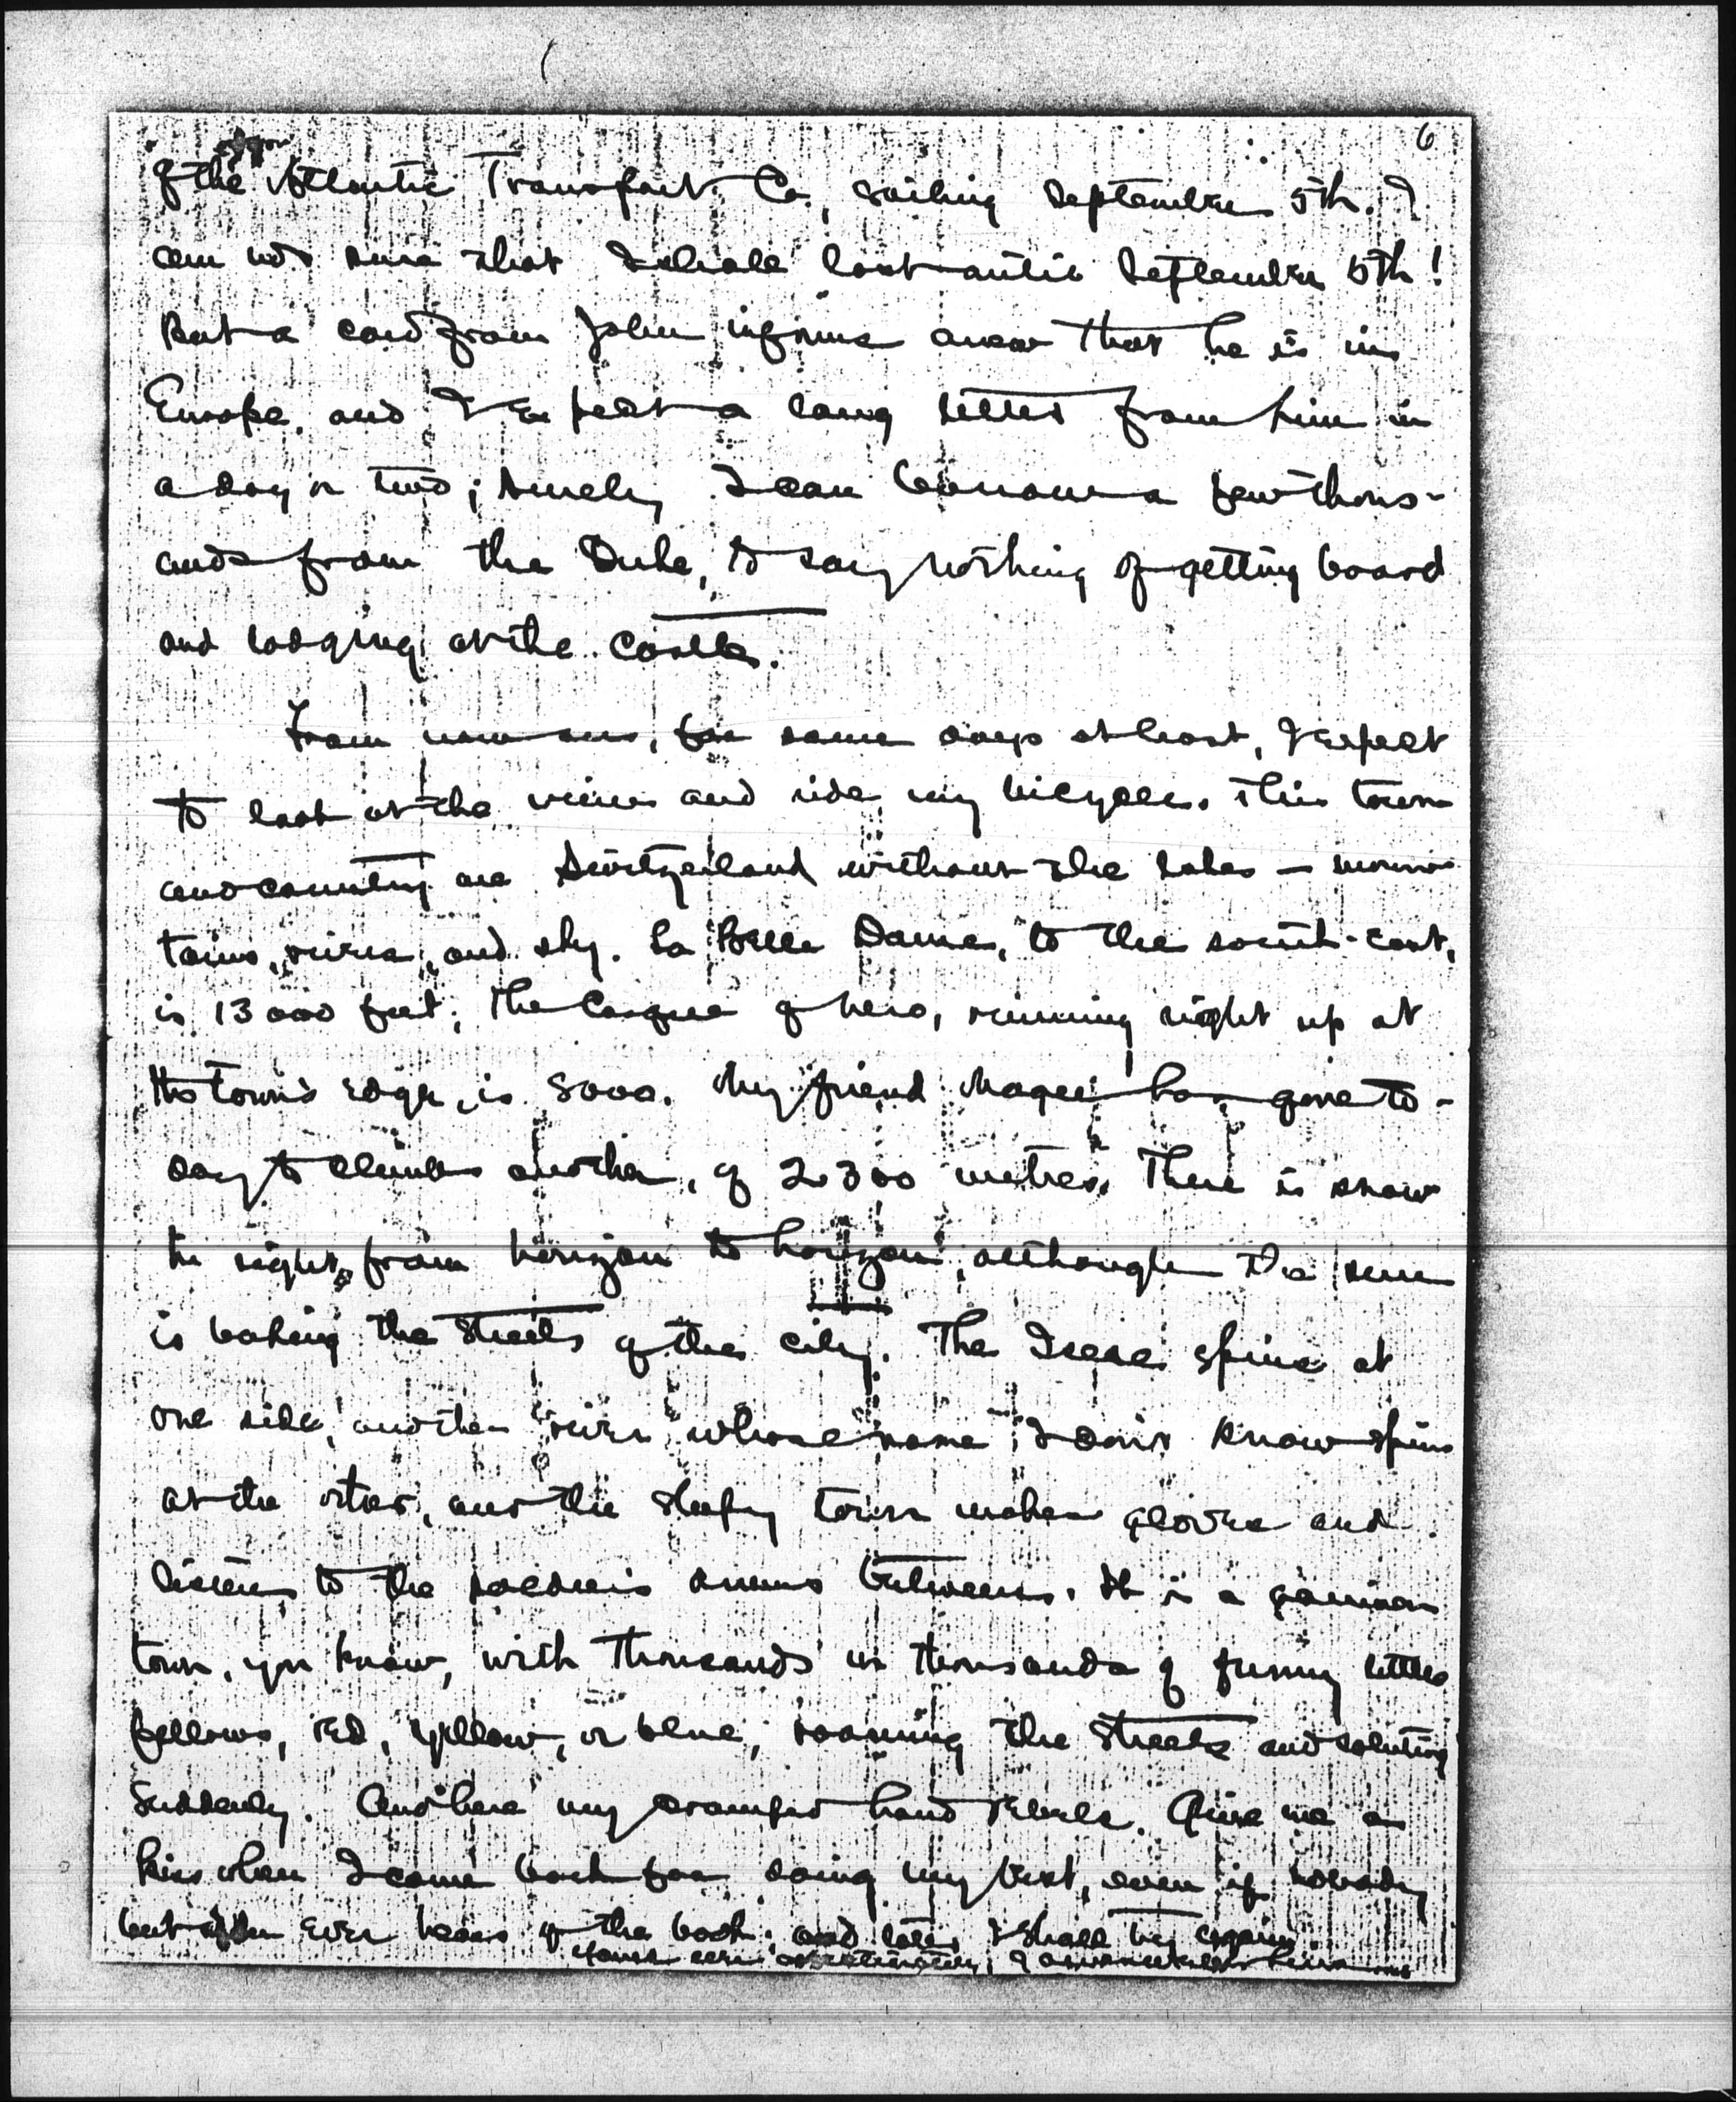 6
of the Atlantic Transport Co., sailing September 5th. I
am not sure that I shall last until September 5th!
But a card from John informs anew that he is in
Europe, and I expect a long letter from him in
a day or two; surely I can borrow a few thous-
ands from the Duke, to say nothing of getting board
and lodging at the castle.
From now on, for some days at least, I expect
to look at the view and ride my bicycle. This town
and country are Switzerland without the lakes — moun-
tains, rivers, and sky. La Belle Dame, to the south-east,
is 13000 feet; the Casque of Nero, running right up at
the town's edge, is 8000. My friend Magee has gone to-
day to climb another, of 2300 metres. There is snow
in sight from horizon to horizon, although the sun
is baking the streets of the city. The Isere spins at
one side, another river whose name I don't know spins
at the other, and the sleepy town makes gloves and
listens to the soldiers drums between. It is a garrison
town, you know, with thousands on thousands of funny little
fellows, red, yellow, or blue, roaming the streets and saluting
suddenly. And here my cramped hand rebels. Give me a
kiss when I come back for doing my best, even if nobody
but you ever hears of the book; and later I shall try again.
Yours